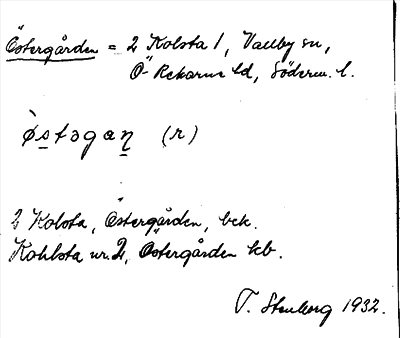 Östergården = 2 Kolsta 1, Vallby sn,
Ö-Rekarne hd, Söderm. l.
ø̀stəgaṇ (r)
2 Kolsta, Östergården, bek.
Kohlsta nr. 2, Östergården kb.
T. Stenberg 1932.